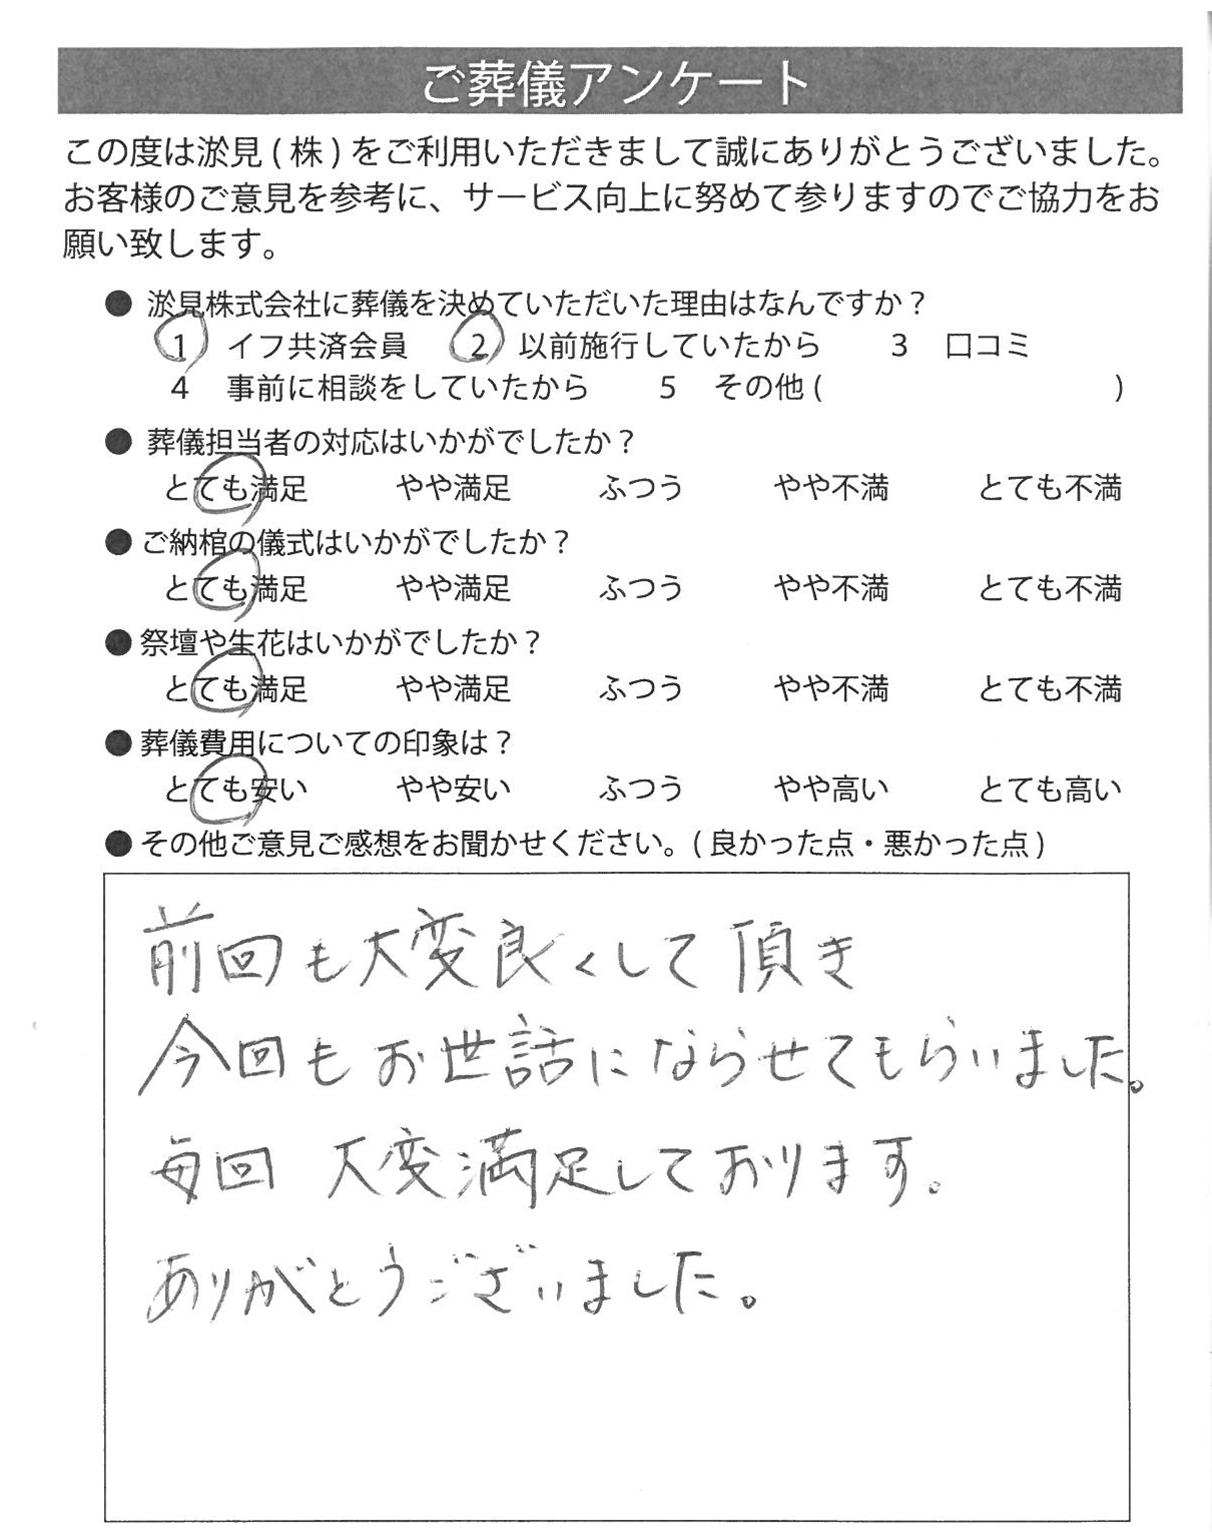 ご葬儀アンケート
この度は淤見(株)をご利用いただきまして誠にありがとうございました。
お客様のご意見を参考に、サービス向上に努めて参りますのでご協力をお
願い致します。
● 淤見株式会社に葬儀を決めていただいた理由はなんですか？
1 イフ共済会員 2 以前施行していたから 3 口コミ
4 事前に相談をしていたから 5 その他( )
● 葬儀担当者の対応はいかがでしたか？
とても満足 やや満足 ふつう やや不満 とても不満
● ご納棺の儀式はいかがでしたか？
とても満足 やや満足 ふつう やや不満 とても不満
● 祭壇や生花はいかがでしたか？
とても満足 やや満足 ふつう やや不満 とても不満
● 葬儀費用についての印象は？
とても安い やや安い ふつう やや高い とても高い
● その他ご意見ご感想をお聞かせください。(良かった点・悪かった点)
前回も大変良くして頂き
今回もお世話にならせてもらいました。
毎回 大変満足しております。
ありがとうございました。